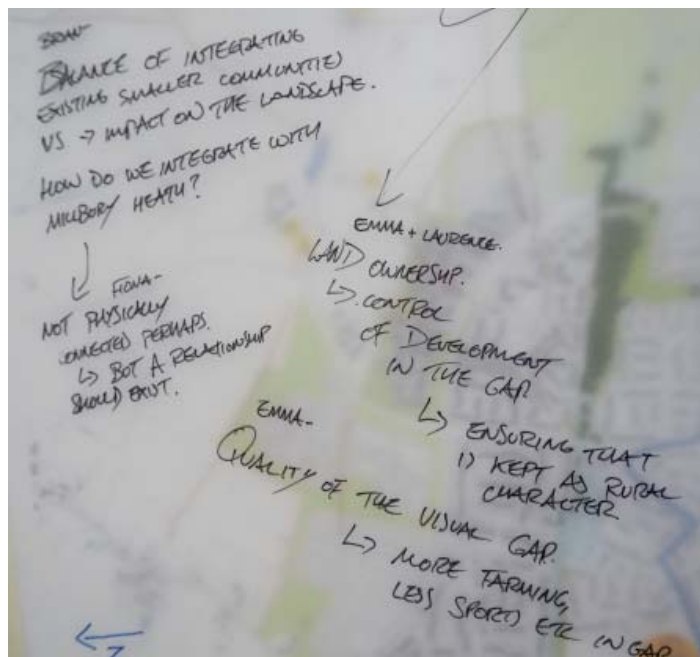 BALANCE OF INTEGRATING
EXISTING SMALLER COMMUNITIES
VS → IMPACT ON THE LANDSCAPE.
HOW DO WE INTEGRATE WITH
HEATH?
FIONA-
NOT PHYSICALLY
CONNECTED PERHAPS.
↳ BUT A RELATIONSHIP
SHOULD EXIST.
EMMA + LAURENCE.
LAND OWNERSHIP.
↳ CONTROL
OF DEVELOPMENT
IN THE GAP
↳ ENSURING THAT
IS KEPT AS RURAL
CHARACTER
EMMA-
QUALITY OF THE VISUAL GAP.
↳ MORE FARMING,
LESS SPORTS ETC IN GAP